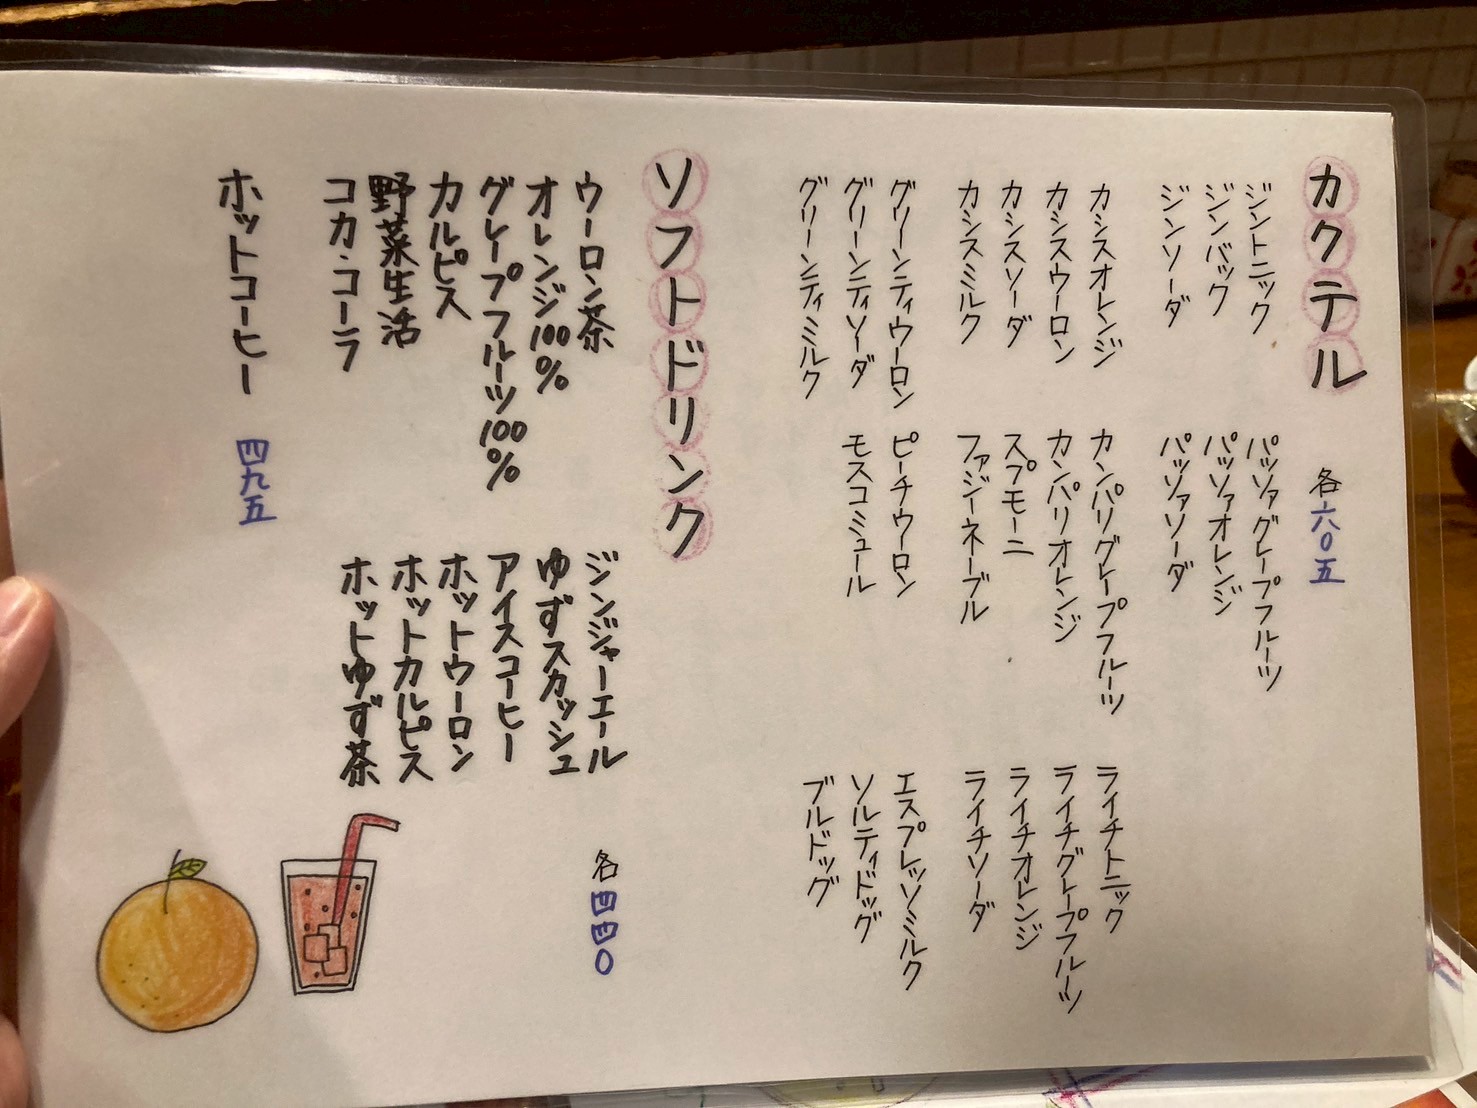 カクテル
各六〇五
ジントニック
ジンバック
ジンソーダ
パッソァグレープフルーツ
パッソァオレンジ
パッソァソーダ
カシスオレンジ
カシスウーロン
カシスソーダ
カシスミルク
カンパリグレープフルーツ
カンパリオレンジ
スプモーニ
ファジーネーブル
ライチトニック
ライチグレープフルーツ
ライチオレンジ
ライチソーダ
グリーンティウーロン
グリーンティソーダ
グリーンティミルク
ピーチウーロン
モスコミュール
エスプレッソミルク
ソルティドッグ
ブルドッグ
ソフトドリンク
ウーロン茶
オレンジ100%
グレープフルーツ100%
カルピス
野菜生活
コカ・コーラ
ジンジャーエール
ゆずスカッシュ
アイスコーヒー
ホットウーロン
ホットカルピス
ホットゆず茶
各四四〇
ホットコーヒー 四九五